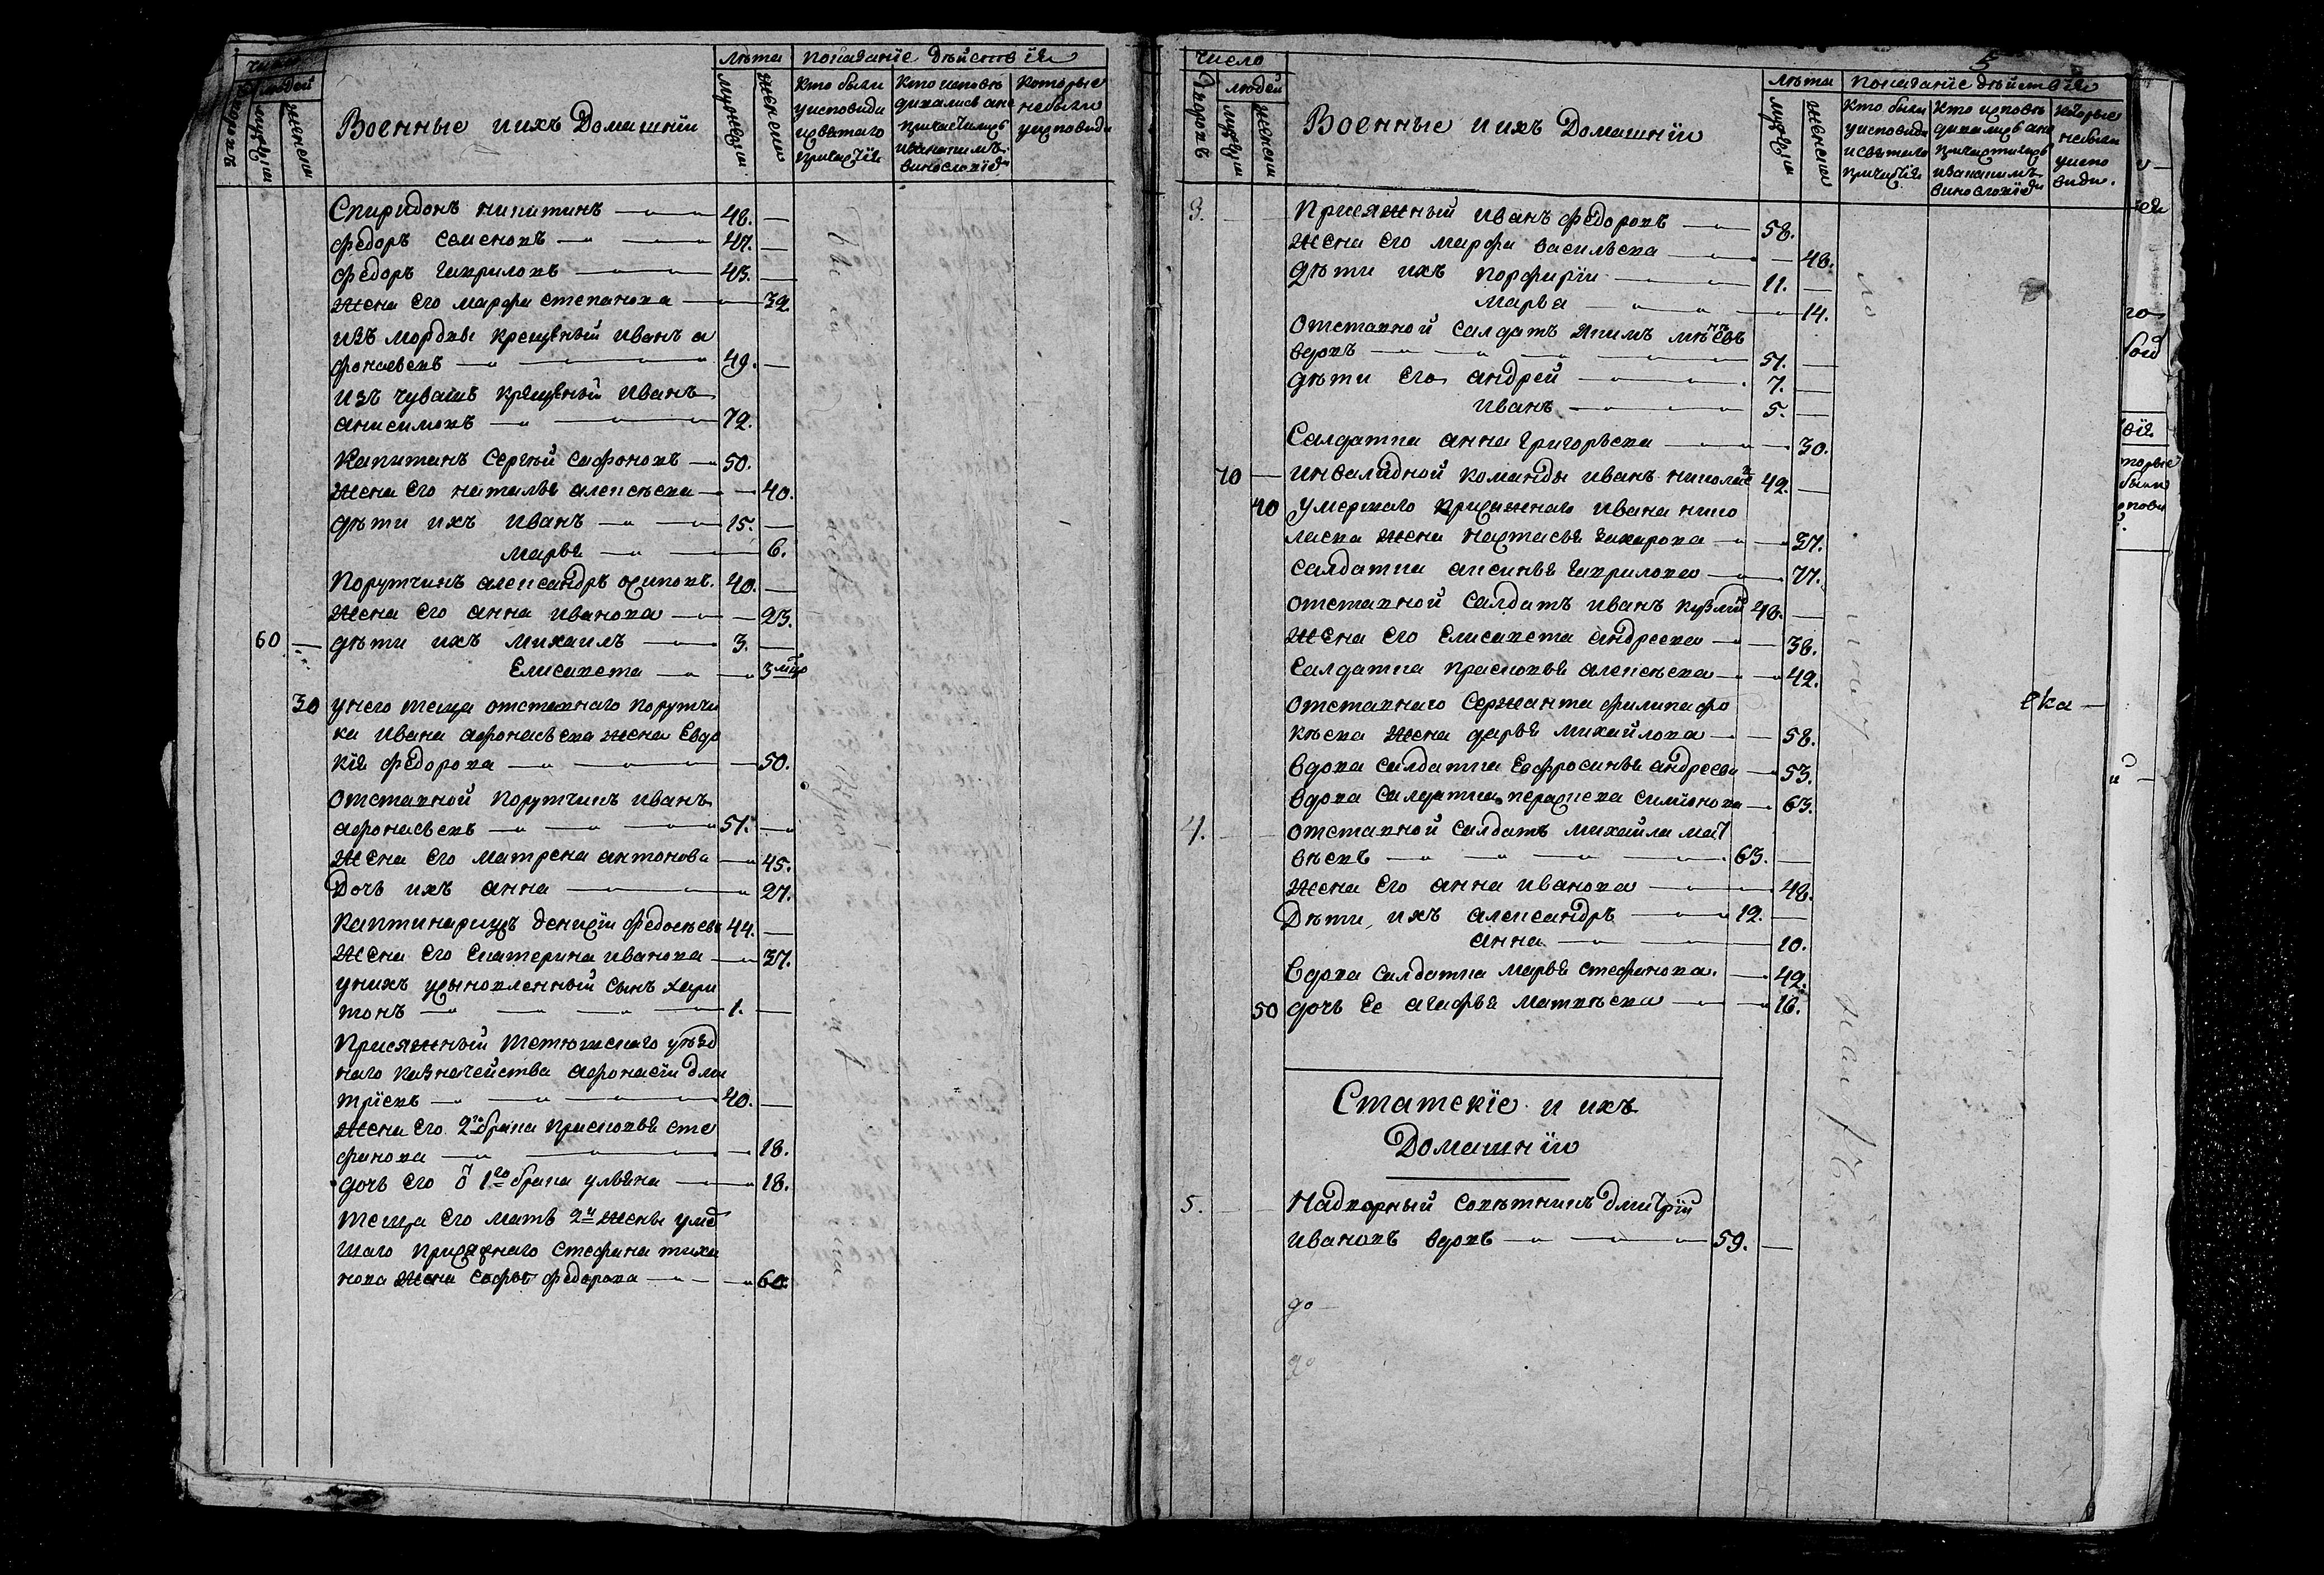 число
людей
мужеска
женска
Военные и ихъ Домашнїи
лѣта
мужеска
женска
показанїе дѣйствїя
Кто были у исповѣди и святаго причастїя
Кто исповѣдывались а не причастились
Которые не были у исповѣди
Спиридонъ никитинъ 48.
федоръ семеновъ 47.
федоръ гавриловъ 43.
жена его марфа степанова 39.
изъ мордвы крещеный иванъ а
фонасьевъ 49.
изъ чувашъ крещеный иванъ
анисимовъ 72.
Капитанъ сергѣй сафоновъ 50.
жена его наталья алексѣева 40.
дѣти ихъ иванъ 15.
марья 6.
Порутчикъ александръ осиповъ. 40.
жена его анна иванова 23.
60 дѣти ихъ михаилъ 3.
Елисавета 3 мцъ
30 у него теща отставнаго порутчи
ка ивана афонасьева жена Евдо
кія федорова 50.
отставной порутчикъ иванъ
афонасьевъ 51.
жена его матрена антонова 45.
Дочь ихъ анна 27.
Каптинармусъ федосѣевъ 44.
жена его екатерина иванова 37.
у нихъ усыновленный сынъ хари
тонъ 1.
Присяжный тетюшскаго уѣзд
наго казначейства афонасїй дми
трїевъ 40.
жена его 2го брака прасковья сте
фанова 18.
дочь его 1го брака ульяна 18.
теща его мать 2й жены умер
шаго присяжнаго стефана тиха
нова жена софья федорова 60.
5
число
дворовъ
людей
мужеска
женска
Военные и ихъ Домашнїи
лѣта
мужеска
женска
Показанїе дѣйствїя
Кто были у исповѣди и святаго причастїя
Кто исповѣдывались а не причастились
Которые не были у исповѣди.
3. Присяжный иванъ федоровъ 58.
жена его марфа васильева 48.
дѣти ихъ порфирїй 11.
марья 14.
отставной салдатъ
вдовъ 51.
дѣти его андрей 7.
иванъ 5.
Салдатка анна григорьева 30.
70 инвалидной команды иванъ 42.
40 умершаго присяжнаго ивана нико
лаева жена настасья захарова 37.
салдатка аксинья гаврилова 77.
отставной салдатъ иванъ кузминъ 48.
жена его елисавета андреева 38.
салдатка прасковья алексѣева 42.
отставнаго сержанта филипа фо
кѣева жена дарья михайлова 58.
вдова салдатка Евфросинья андреева 53.
вдова салдатка симионова 63.
4. отставной салдатъ михайла мат
вѣевъ 63.
жена его анна иванова 48.
Дѣти ихъ александръ 12.
анна 10.
вдова салдатка марья стефанова. 42.
50 дочь ее агафья матвѣева 16.
Статскїе и ихъ
Домашнїи
5. Надворный совѣтникъ дмитрїй
ивановъ вдовъ 59.
до